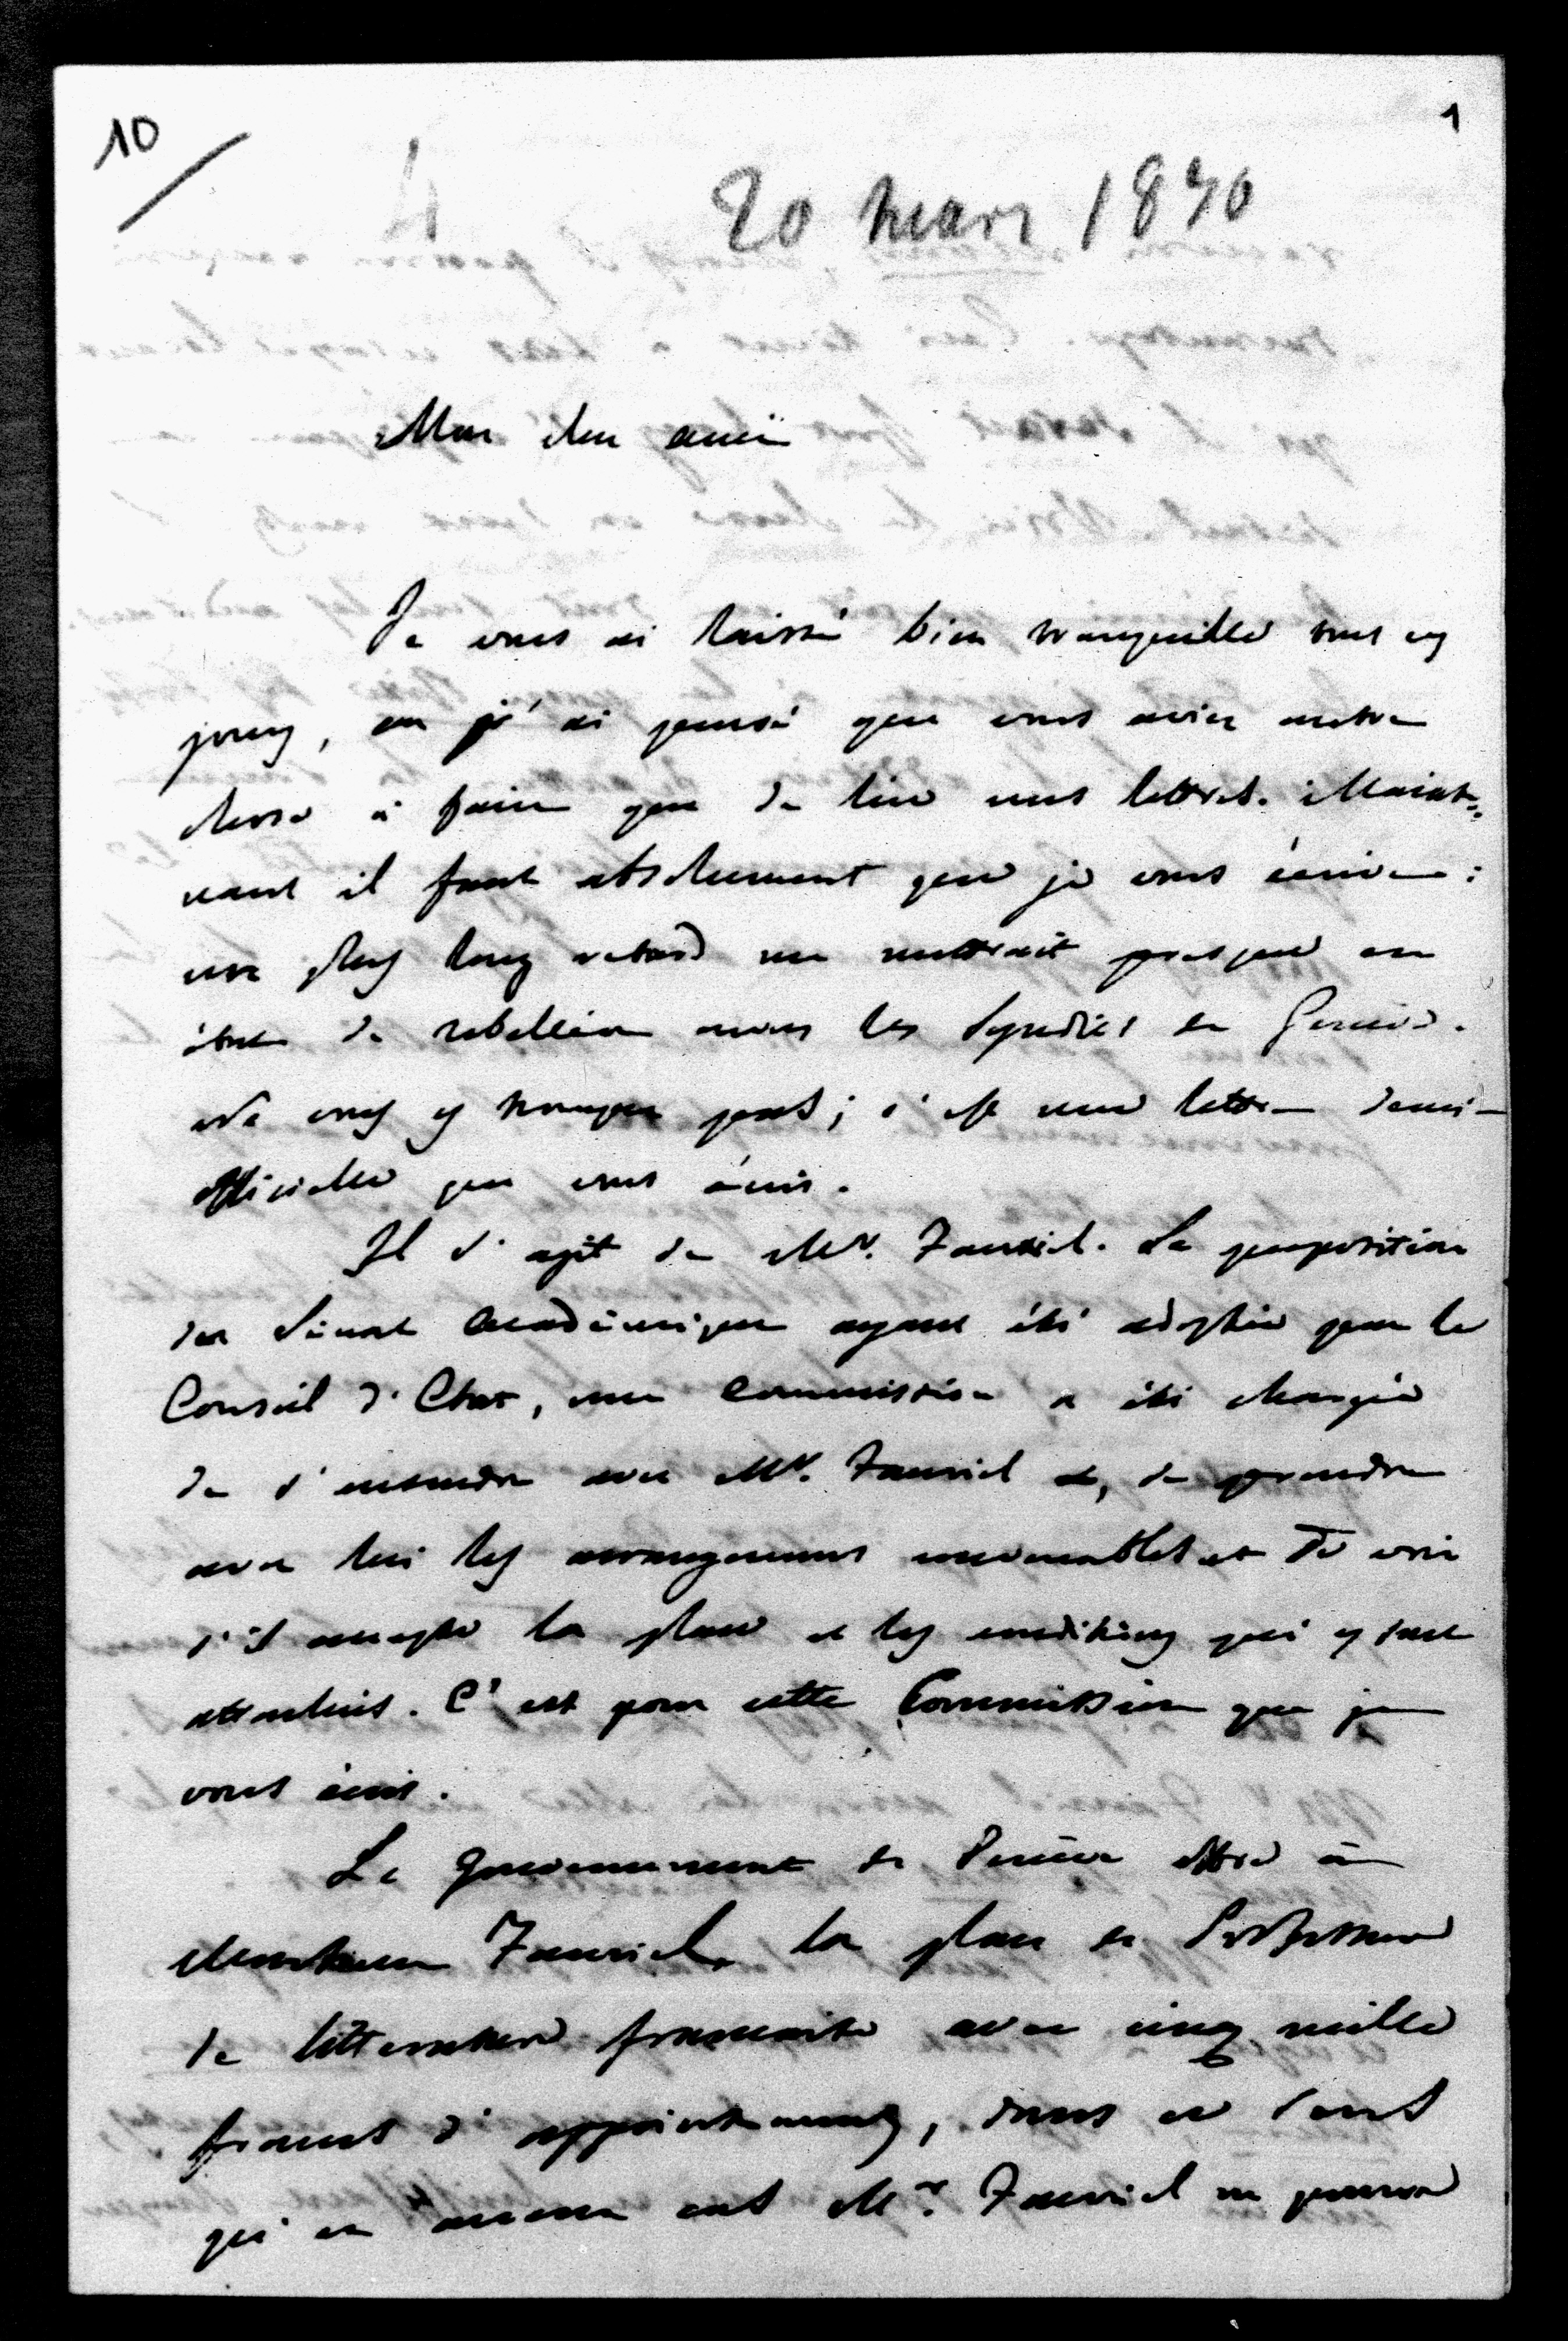 10
1
20 mars 1830
Mon cher ami
Je vous ai laissé bien tranquille tous ces
jours, car j'ai pensé que vous aviez autre
chose à faire que de lire mes lettres. Mainte-
nant il faut absolument que je vous écrive :
un plus long retard me mettrait presque en
état de rebellion envers les Syndics de Genève.
Ne vous y trompez pas ; c'est une lettre demi-
officielle que vous écris.
Il s'agit de Mr. Fauriel. La proposition
du Sénat Académique ayant été adoptée par le
Conseil d'Etat, une commission a été chargée
de s'entendre avec Mr. Fauriel et, de prendre
avec lui les arrangemens convenables et de voir
s'il accepte la place et les conditions qui y sont
attachées. C'est pour cette Commission que je
vous écris.
Le Gouvernement de Genève offre à
Monsieur Fauriel la place de Professeur
de littérature française avec cinq mille
francs d'appointemens, dans ce sens
qui en aucun cas Mr. Fauriel ne pourra